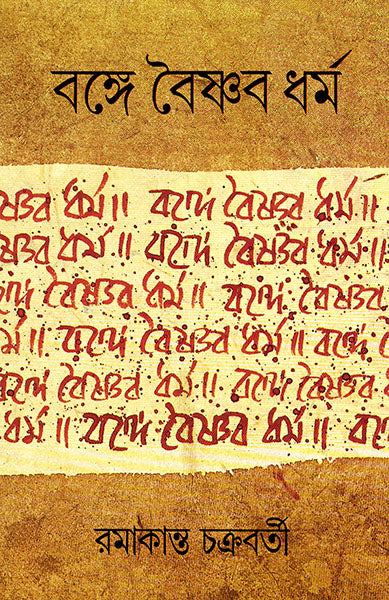 বঙ্গে বৈষ্ণব ধর্ম
বৈষ্ণব ধর্ম॥ বঙ্গে বৈষ্ণব ধর্ম॥
বৈষ্ণব ধর্ম॥ বঙ্গে বৈষ্ণব ধর্ম॥
বঙ্গে বৈষ্ণব ধর্ম॥ বঙ্গে বৈষ্ণব
ধর্ম॥ বঙ্গে বৈষ্ণব ধর্ম॥ বঙ্গে
বঙ্গে বৈষ্ণব ধর্ম॥ বঙ্গে বৈষ্ণব
ধর্ম॥ বঙ্গে বৈষ্ণব ধর্ম॥ বঙ্গে
রমাকান্ত চক্রবর্তী